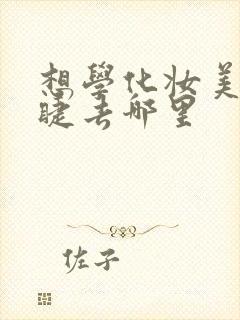 想學化妝美
睫去哪里
佐子